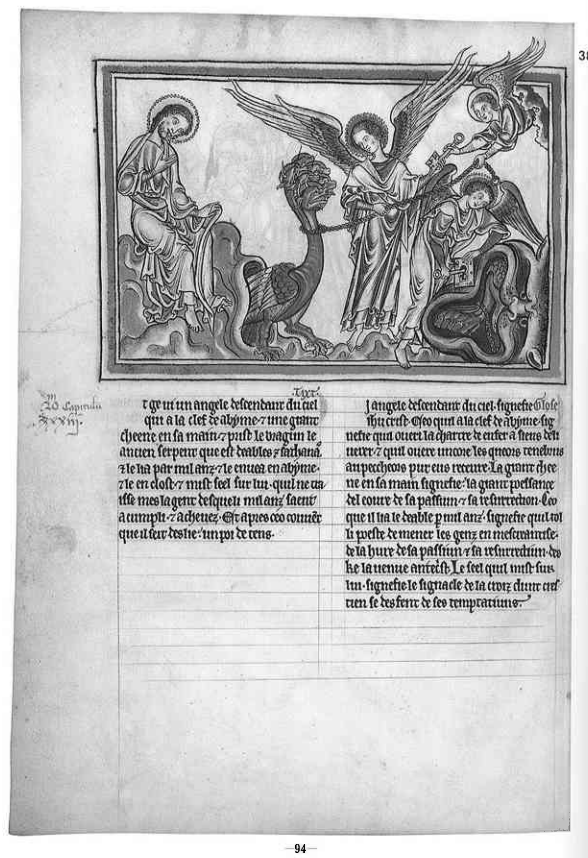 38
Text'
t ge vi un angele descendant du ciel
qui a la clef de abyme ⁊ une grant
cheene en sa main ⁊ prist le dragun le
ancien serpent que est deables ⁊ sathanas
⁊ le lia par mil anz ⁊ le envea en abyme
⁊ le en clost ⁊ mist seel sur lui quil ne
isse mes la gent desque li mil anz saent
acumpli ⁊ achevez Et apres ceo covient
que il seit deslie un poi de tens
Capitulu
xxviij
J angele descendant du ciel signefie Glose
ihu crist Ceo quil a la clef de abyme sig
nefie quil overi la chartre de enfer a siens deli
verer ⁊ quil overe uncore les queors
au pecheors pur eus receivre La grant chee
ne en sa main signefie la grant poessance
del de sa passiun ⁊ sa resurrectiun Ceo
que il lia le deable p mil anz signefie quil tol
li poste de mener les genz en mescreantise
de la hure de sa passiun ⁊ sa resurrectiun des
ke la venue antecrist Le seel quil mist sur
lui signefie le signacle de la croiz dunt cres
tien se desfent de ses temptatiuns
94